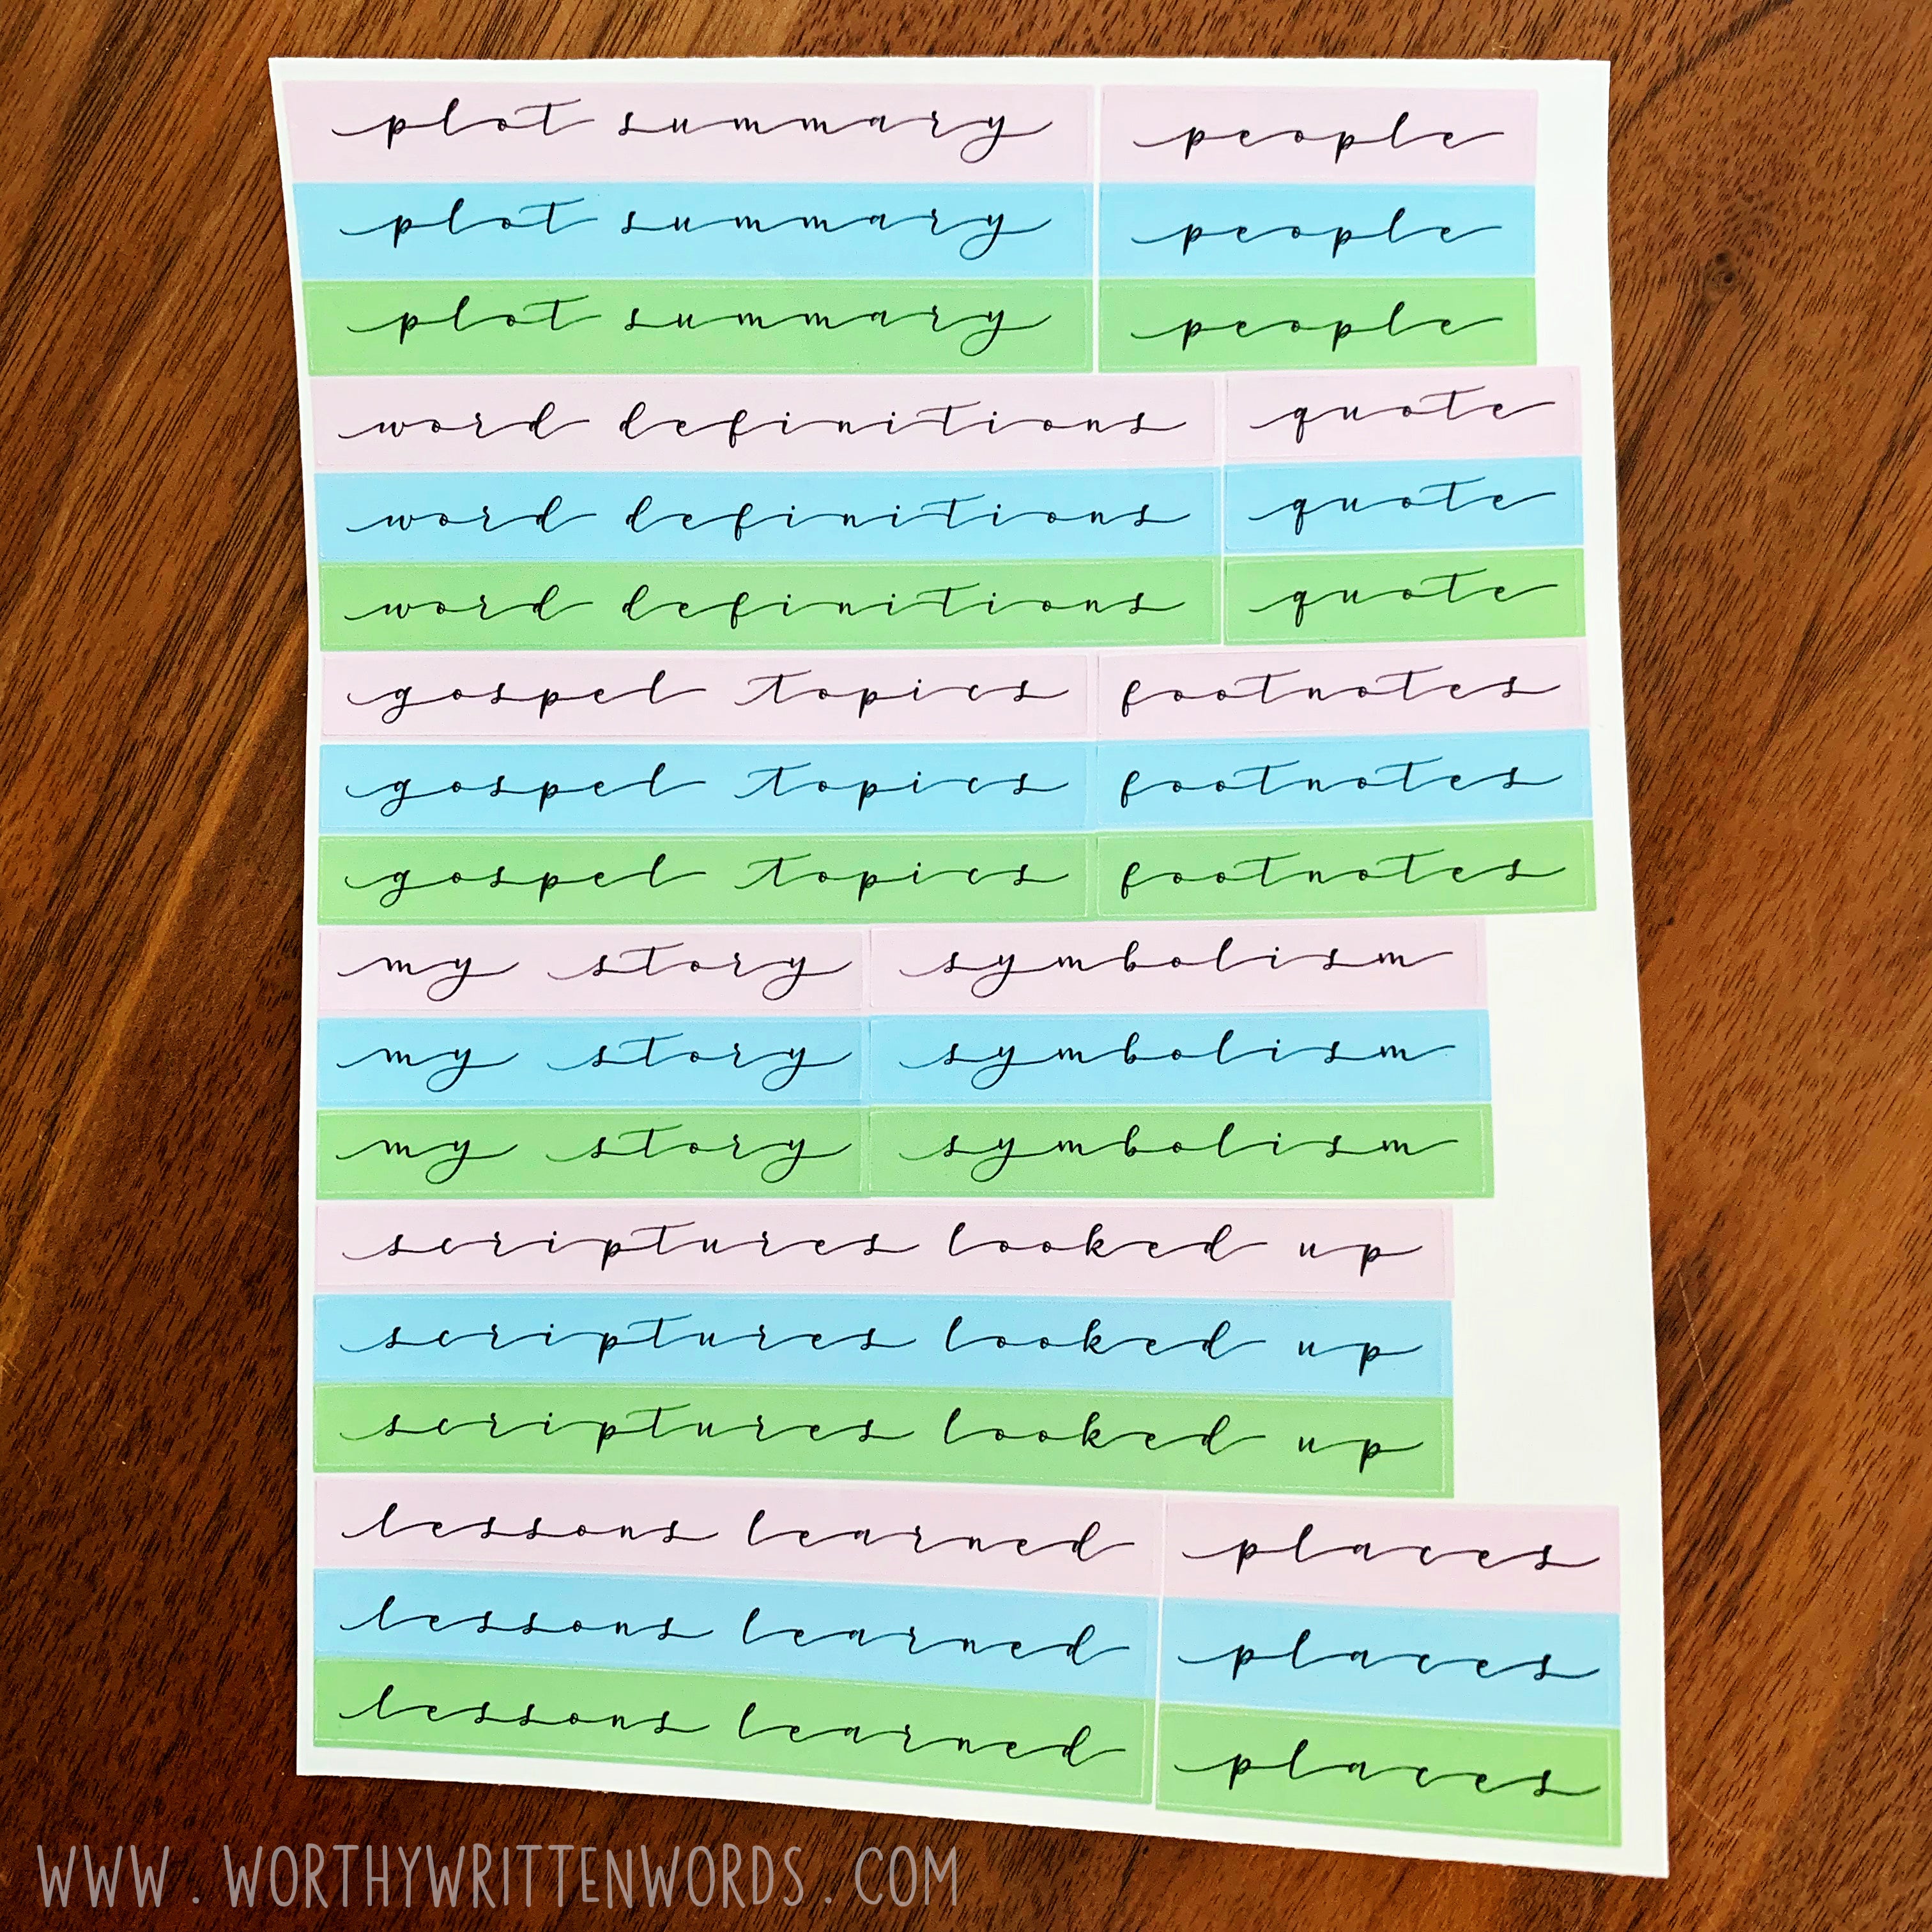 plot summary people
plot summary people
plot summary people
word definitions quote
word definitions quote
word definitions quote
gospel topics footnotes
gospel topics footnotes
gospel topics footnotes
my story symbolism
my story symbolism
my story symbolism
scriptures looked up
scriptures looked up
scriptures looked up
lessons learned places
lessons learned places
lessons learned places
WWW.WORTHYWRITTENWORDS.COM